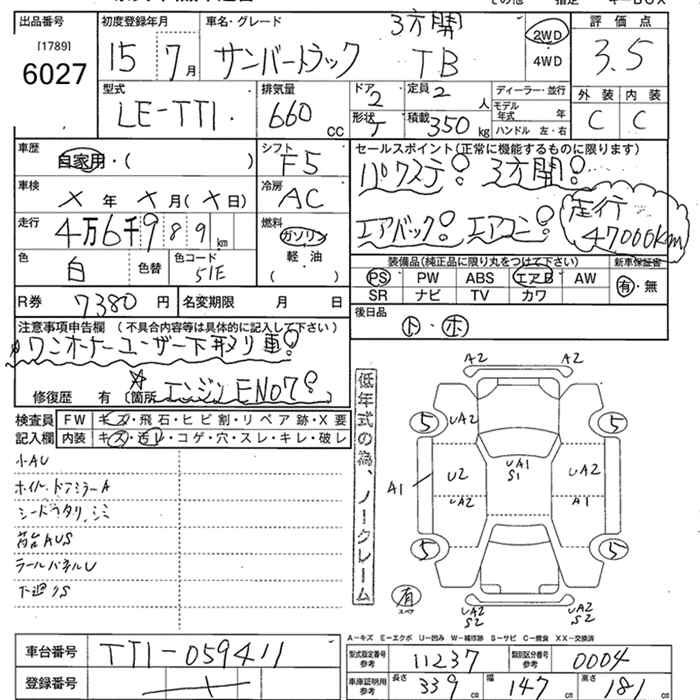 出品番号
[1789]
6027
初度登録年月
15年 7月
車名・グレード
サンバートラック
3方開
TB
2WD
4WD
評価点
3.5
外装 内装
C C
型式
LE-TT1
排気量
660 CC
ドア
2
形状
定員
2人
積載
350 kg
ディーラー・並行
モデル年式 年
ハンドル 左・右
車歴
自家用・( )
シフト
F5
セールスポイント(正常に機能するものに限ります)
パワステ! 3方開!
エアバック! エアコン!
走行
47000km
車検
× 年 × 月 (× 日)
冷房
AC
走行
4万6千989km
燃料
ガソリン
軽油
( )
色
白
色替
色コード
51E
装備品(純正品に限り丸をつけて下さい)
PS PW ABS エアB AW
SR ナビ TV カワ
新車保証書
有・無
R券
7380円
名変期限 月 日
後日品
ト・ホ
注意事項申告欄 (不具合内容等は具体的に記入して下さい)
ワンオーナーユーザー下取り車!
修復歴 有 [箇所 エンジンEN07!
検査員記入欄
FW キズ・飛石・ヒビ割・リペア跡・X要
内装 キズ・汚レ・コゲ・穴・スレ・キレ・破レ
小AU
ホイル、ドアミラーA
シートヘタリ、シミ
荷台AUS
ラールパネルU
下廻りS
低年式の為、ノークレーム
A2 A2
5 UA2 5
A1 U2 UA1 S1 UA2
UA2 UA2
5 5
有
スペア
UA2 S2 UA2 S2
A－キズ E－エクボ U－凹み W－補修跡 S－サビ C－腐食 XX－交換済
車台番号
TT1-059411
登録番号
型式指定番号 参考
11237
類別区分番号 参考
0004
車庫証明用 参考
長さ 339cm
幅 147cm
高さ 181cm